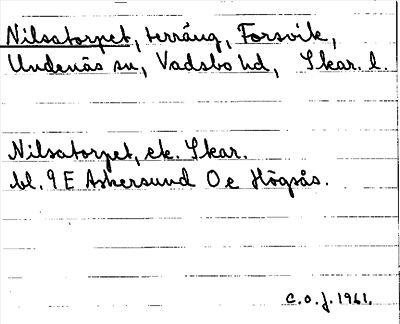 Nilsatorpet, terräng, Forsvik,
Undenäs sn, Vadsbo hd, Skar. l.
Nilsatorpet, ek. Skar.
bl. 9 E Askersund O e Högsås.
C.O.J. 1961.